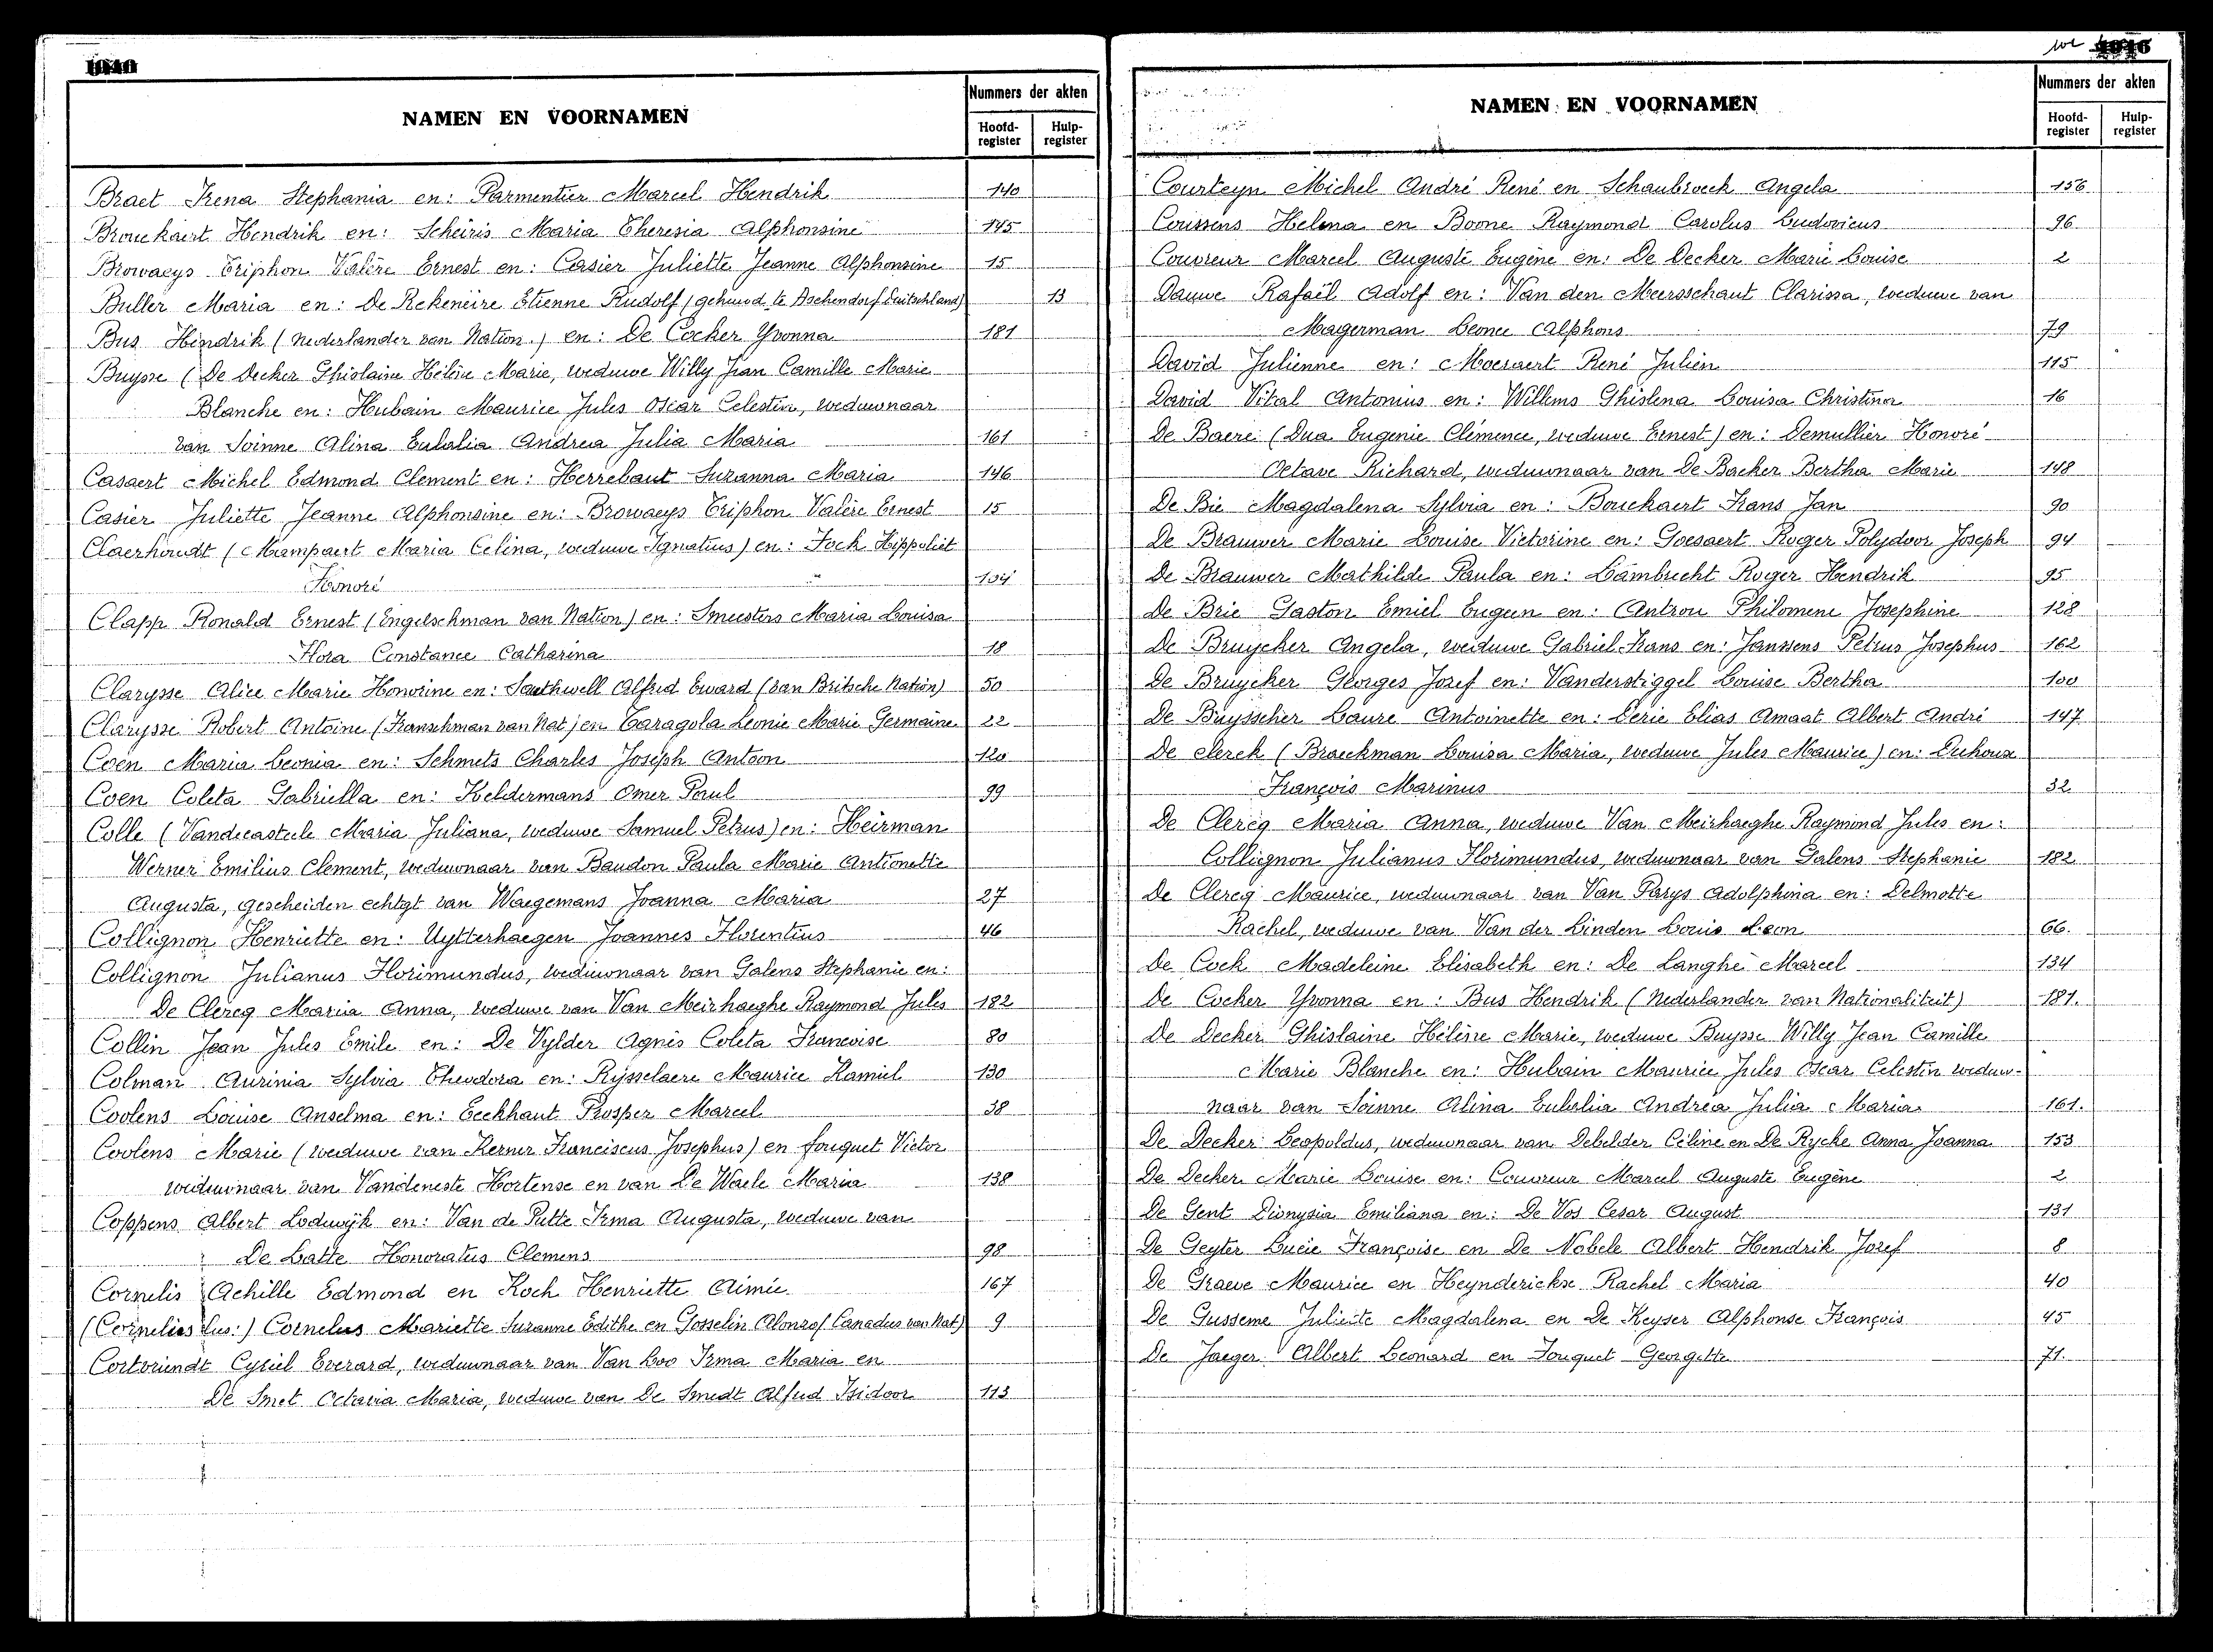 NAMEN EN VOORNAMEN
Nummers der akten
Hoofd-register
Hulp-register
Braet Irena Stephania en: Parmentier Marcel Hendrik 140
Brouckaert Hendrik en: Scheiris Maria Theresia Alphonsine 145
Browaeys Triphon Valère Ernest en: Casier Juliette Jeanne Alphonsine 15
Buller Maria en: De Rekeneire Etienne Rudolf (gehuwd te Aschendorf Duitschland) 13
Bus Hendrik (Nederlander van Nation.) en: De Cocker Yvonna 181
Buysse (De Decker Ghislaine Hélène Marie, weduwe Willy Jean Camille Marie
Blanche en: Hubain Maurice Jules Oscar Celestin, weduwnaar
van Soinne Alina Eulalia Andrea Julia Maria 161
Casaert Michel Edmond Clement en: Herrebaut Suzanna Maria 146
Casier Juliette Jeanne Alphonsine en: Browaeys Triphon Valère Ernest 15
Claerhoudt (Mampaert Maria Celina, weduwe Ignatius) en: Fock Hippoliet
Honoré 104
Clapp Ronald Ernest (Engelschman van Nation) en: Smeesters Maria Louisa
Flora Constance Catharina 18
Clarysse Alice Marie Honorine en: Southwell Alfred Eward (van Britsche Nation) 50
Clarysse Robert Antoine (Franschman van Nat) en Caragola Leonie Marie Germaine 22
Coen Maria Leonia en: Schmets Charles Joseph Antoon 120
Coen Coleta Gabriella en: Keldermans Omer Paul 99
Colle (Vandecasteele Maria Juliana, weduwe Samuel Petrus) en: Heirman
Werner Emilius Clement, weduwnaar van Baudon Paula Marie Antionette
Augusta, gescheiden echtgt van Waegemans Joanna Maria 27
Collignon Henriette en: Uytterhaegen Joannes Florentius 46
Collignon Julianus Florimundus, weduwnaar van Galens Stephanie en:
De Clercq Maria Anna, weduwe van Van Meirhaeghe Raymond Jules 182
Collin Jean Jules Emile en: De Vylder Agnès Coleta Francoise 80
Colman Aurinia Sylvia Theodora en: Rysselaere Maurice Kamiel 130
Coolens Louise Anselma en: Eeckhaut Prosper Marcel 38
Coolens Marie (weduwe van Kerner Franciscus Josephus) en fouquet Victor
weduwnaar van Vandeneste Hortense en van De Waele Maria 138
Coppens Albert Lodewijk en: Van de Putte Irma Augusta, weduwe van
De Latte Honoratus Clemens 98
Cornelis Achille Edmond en Koch Henriette Aimée 167
(Cornelies lus:) Cornelus Mariette Suzanne Edithe en Gosselin Alonzo (Canadees van Nat) 9
Cortvriendt Cyriel Everard, weduwnaar van Van Loo Irma Maria en
De Smet Octavia Maria, weduwe van De Smedt Alfred Isidoor 113
NAMEN EN VOORNAMEN
Nummers der akten
Hoofd-register
Hulp-register
Courteyn Michel André René en Schaubroeck Angela 156
Coussens Helena en Boone Raymond Carolus Ludovicus 96
Couvreur Marcel Auguste Eugène en: De Decker Marie Louise 2
Dauwe Rafaël Adolf en: Van den Meersschaut Clarissa, weduwe van
Magerman Leonce Alphons 79
David Julienne en: Moeraert René Julien 115
David Vital Antonius en: Willems Ghislena Louisa Christina 16
De Baere (Dua Eugenie Clémence, weduwe Ernest) en: Demullier Honoré
Octave Richard, weduwnaar van De Backer Bertha Marie 148
De Bie Magdalena Sylvia en: Bouckaert Frans Jan 90
De Brauwer Marie Louise Victorine en: Goesaert Roger Polydoor Joseph 94
De Brauwer Mathilde Paula en: Lambrecht Roger Hendrik 95
De Brie Gaston Emiel Eugeen en: Antrou Philomene Josephine 128
De Bruycker Angela, weduwe Gabriel Frans en: Janssens Petrus Josephus 162
De Bruycker Georges Jozef en: Vanderstiggel Louise Bertha 100
De Buysscher Laure Antoinette en: Lerie Elias Amaat Albert André 147
De Clerck (Braeckman Louisa Maria, weduwe Jules Maurice) en: Duhoux
François Marinus 32
De Clercq Maria Anna, weduwe Van Meirhaeghe Raymond Jules en:
Collignon Julianus Florimundus, weduwnaar van Galens Stephanie 182
De Clercq Maurice, weduwnaar van Van Parys Adolphina en: Delmotte
Rachel, weduwe van Van der Linden Louis Leon 66.
De Cock Madeleine Elisabeth en: De Langhe Marcel 134
De Cocker Yvonna en: Bus Hendrik (Nederlander van Nationaliteit) 181.
De Decker Ghislaine Hélène Marie, weduwe Buysse Willy Jean Camille
Marie Blanche en: Hubain Maurice Jules Oscar Celestin weduw-
naar van Soinne Alina Eulalia Andrea Julia Maria 161.
De Decker Leopoldus, weduwnaar van Debelder Céline en De Rycke Anna Joanna 153
De Decker Marie Louise en: Couvreur Marcel Auguste Eugène 2
De Gent Dionysia Emiliana en: De Vos Cesar August 131
De Geyter Lucie Françoise en De Nobele Albert Hendrik Jozef 8
De Graeve Maurice en Heynderickx Rachel Maria 40
De Gusseme Juliette Magdalena en De Keyser Alphonse François 45
De Jaeger Albert Leonard en Fouquet Georgette 71.